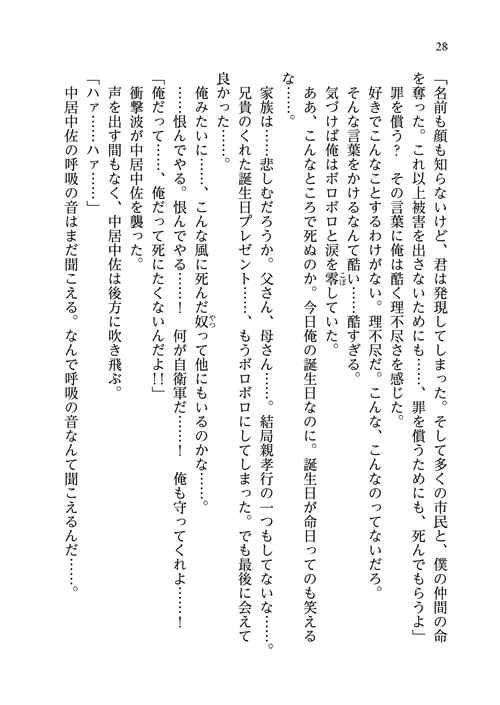 28
「名前も顔も知らないけど、君は発現してしまった。そして多くの市民と、僕の仲間の命
を奪った。これ以上被害を出さないためにも……、罪を償うためにも、死んでもらうよ」
罪を償う？　その言葉に俺は酷く理不尽さを感じた。
好きでこんなことするわけがない。理不尽だ。こんな、こんなのってないだろ。
そんな言葉をかけるなんて酷い……酷すぎる。
気づけば俺はボロボロと涙を零こぼしていた。
ああ、こんなところで死ぬのか。今日俺の誕生日なのに。誕生日が命日ってのも笑える
な……。
家族は……悲しむだろうか。父さん、母さん……。結局親孝行の一つもしてないな……。
兄貴のくれた誕生日プレゼント……、もうボロボロにしてしまった。でも最後に会えて
良かった……。
俺みたいに……、こんな風に死んだ奴やつって他にもいるのかな……。
……恨んでやる。恨んでやる……！　何が自衛軍だ……！　俺も守ってくれよ……！
「俺だって……、俺だって死にたくないんだよ!!」
衝撃波が中居中佐を襲った。
声を出す間もなく、中居中佐は後方に吹き飛ぶ。
「ハァ……ハァ……」
中居中佐の呼吸の音はまだ聞こえる。なんで呼吸の音なんて聞こえるんだ……。